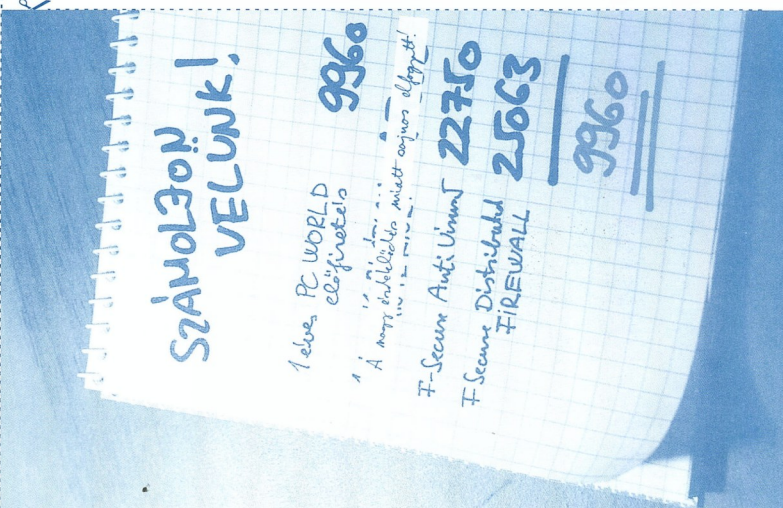 SZÁMOLJON
VELÜNK!
1 éves PC WORLD 9960
előfizetés
1
A nagy érdeklődés miatt sajnos elfogyott!
F-Secure Anti Virus 22750
F-Secure Distributed 25063
FIREWALL
9960